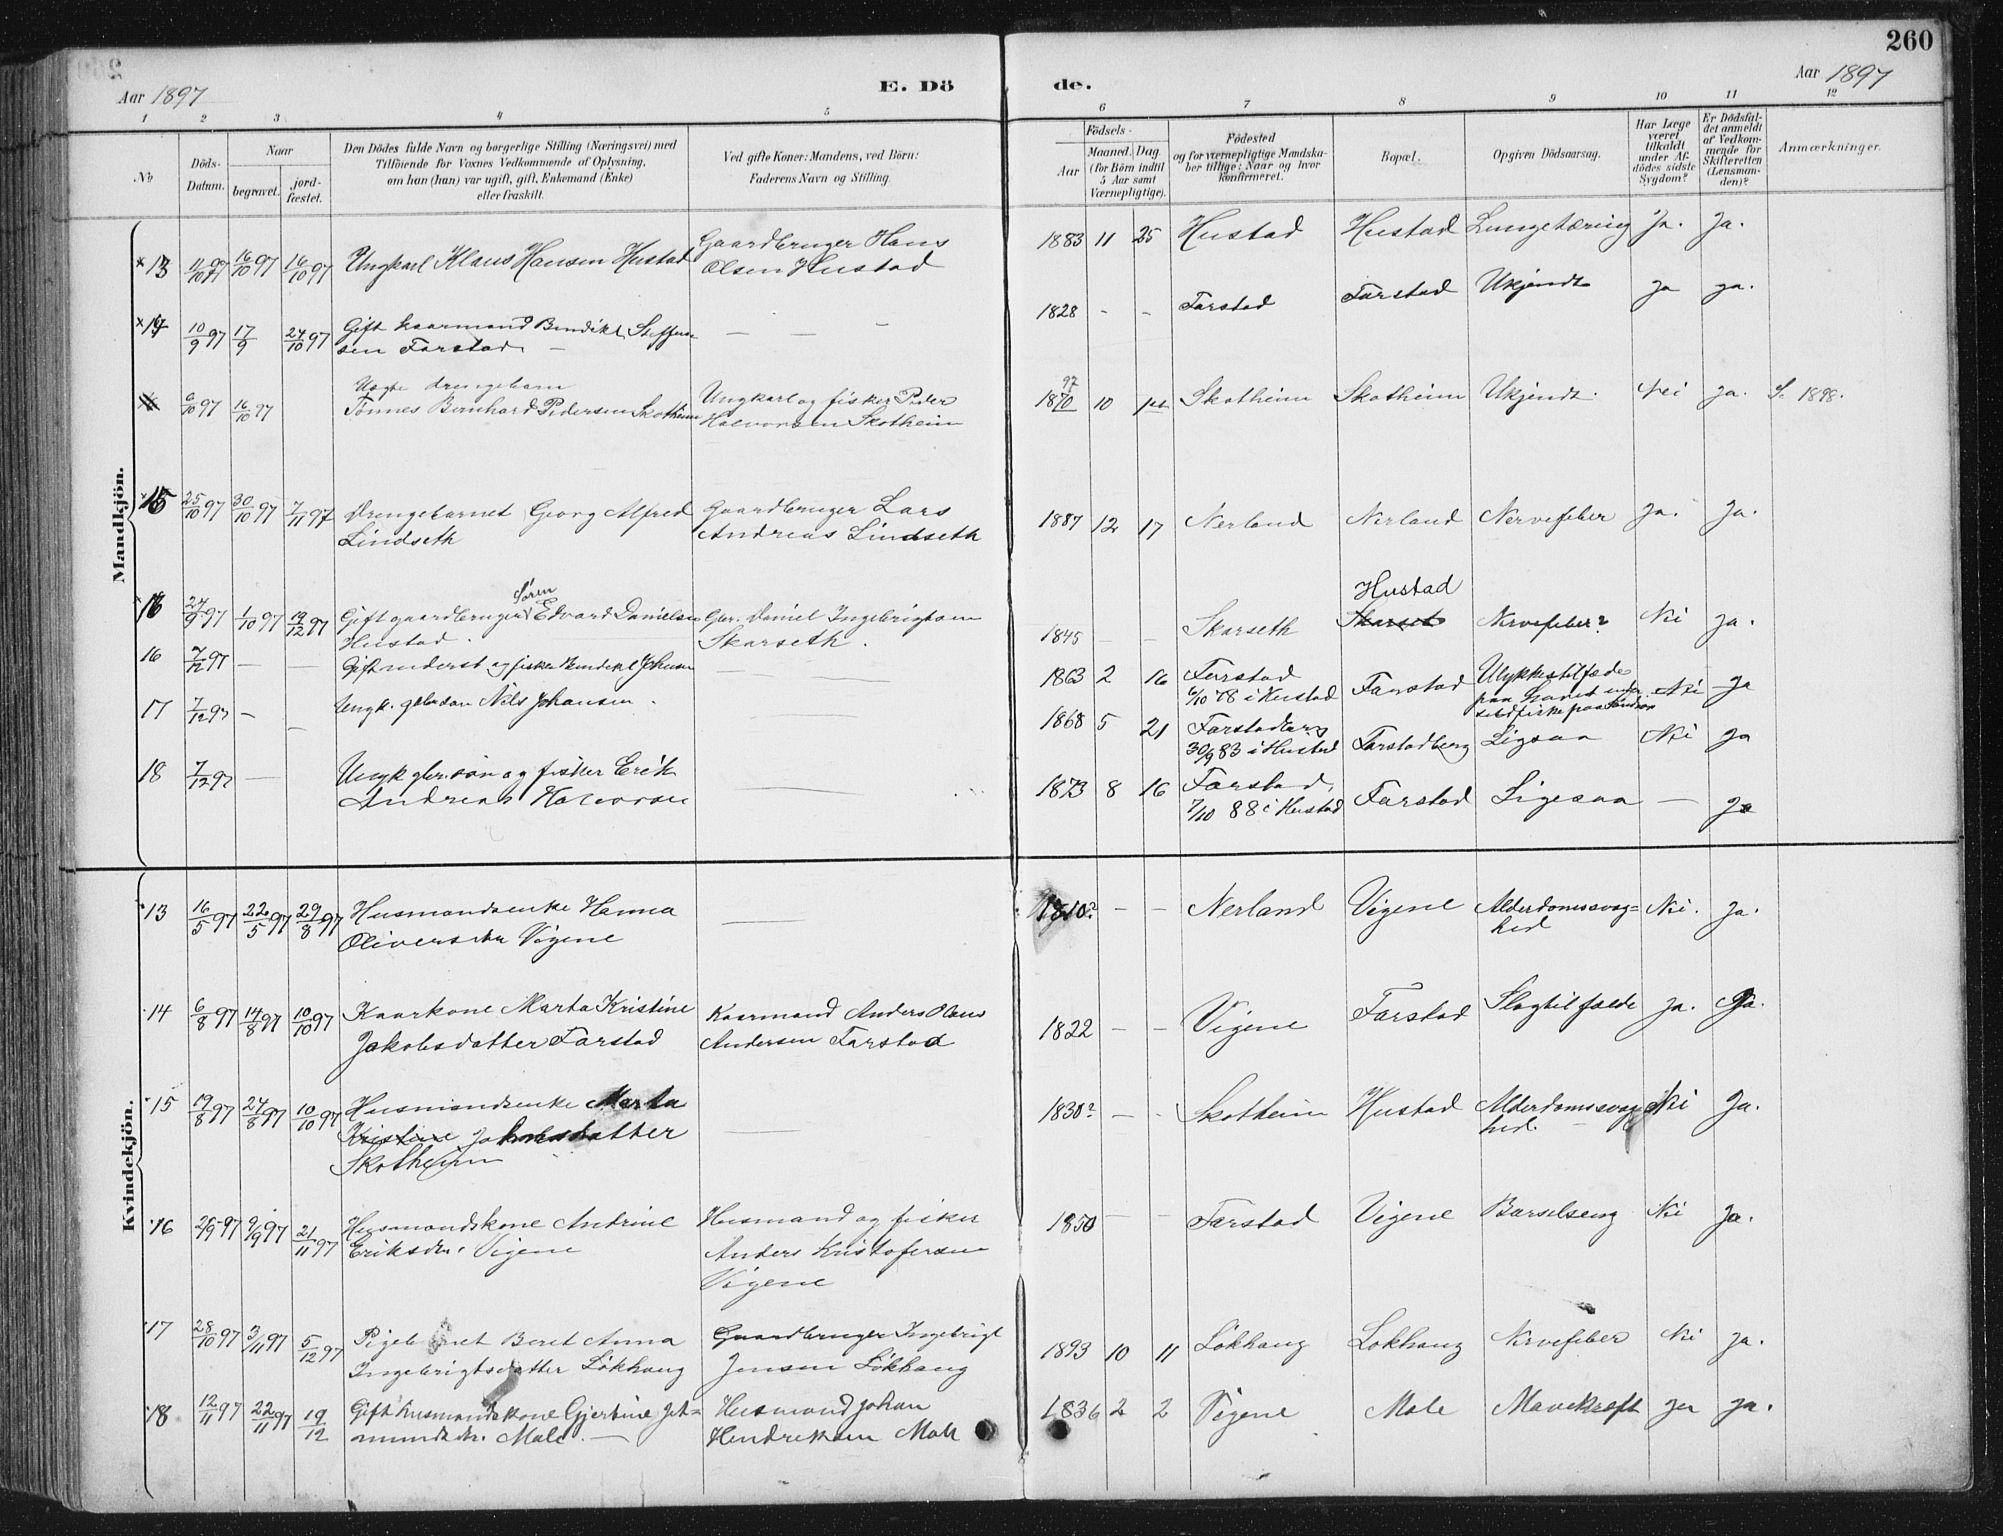 260
Aar 1897
E. Dö
de.
Aar 1897
1 2 3 4 5
6 7 8 9 10 11 12
No
Döds-Datum.
Naar
begravet.
jord-fæstet.
Den Dödes fulde Navn og borgerlige Stilling (Næringsvei) med
Tilföiende for Voxnes Vedkommende af Oplysning,
om han (hun) var ugift, gift, Enkemand (Enke)
eller fraskilt.
Ved gifte Koner: Mandens, ved Börn:
Faderens Navn og Stilling.
Födsels-
Aar
Maaned. Dag.
(for Börn indtil
5 Aar samt
Værnepligtige).
Födested
og for værnepligtige Mandska-
ber tillige: Naar og hvor
konfirmeret.
Bopæl.
Opgiven Dödsaarsag.
Har Læge
været
tilkaldt
under Af-
dödes sidste
Sygdom?
Er Dödsfal-
det anmeldt
af Vedkom-
mende for
Skifteretten
(Lensman-
den)?
Anmærkninger.
Mandkjön.
13 11/10 97 16/10 97 16/10 97 Ungkarl Klaus Hansen Hustad Gaardbruger Hans
Olsen Hustad
1883 11 25 Hustad Hustad Lungetæring Ja. Ja.
14 10/9 97 17/9 24/10 97 Gift kaarmand Bendikt Steffen-
sen Farstad — — — —
1828 - - Farstad Farstad Ukjendt Ja ja.
6/10 97 16/10 97 Uægte drengebarn
Tönnes Bernhard Pedersen Skotheim
Ungkarl og fisker Peder
Halvorsen Skotheim
97
1870 10 1ste Skotheim Skotheim Ukjendt. Nei ja. S. 1898.
15 25/10 97 30/10 97 7/11 97 Drengebarnet Georg Alfred
Lindseth
Gaardbruger Lars
Andreas Lindseth
1887 12 17 Nerland Nerland Nervefeber Ja. Ja.
16 24/9 97 1/10 97 19/12 97 Sören
Gift gaardbruger Edvard Danielsen
Hustad.
Gbr. Daniel Ingebrigtsen
Skarseth.
Hustad
1845 — — Skarseth Skarset Nervefeber? Nei Ja.
16 7/12 97 — — Gift inderst og fisker Bendikt Johnsen —
1863 2 16 Farstad
6/10 78 i Hustad Farstad Ulykkestilfælde
paa havet under
sildfiske paa Nei Ja
17 7/12 97 — — Ungk. gbrsön Nils Johansen.
1868 5 21 Farstadberg
30/9 83 i Hustad Farstadberg Ligsaa Nei Ja
18 7/12 97 — Ungk. gbr.sön og fisker Erik
Andreas Halvorsen —
1873 8 16 Farstad,
7/10 88 i Hustad Farstad Ligesaa — Ja
Kvindekjön.
13 16/5 97 22/5 97 29/8 97 Husmandsenke Hanna
Oliversdtr Vigene —
1810? — — Nerland Vigene Alderdomssvag=
hed Nei. Ja.
14 6/8 97 14/8 97 10/10 97 Kaarkone Marta Kristine
Jakobsdatter Farstad
Kaarmand Anders Hans
Andersen Farstad
1822 — — Vigene Farstad Slagtilfælde ja. Ja.
15 19/8 97 24/8 97 10/10 97 Husmandsenke Marta
Kristine Jakobsdatter
Skotheim —
1830? — - Skotheim Hustad Alderdomssvag
hed. Nei Ja.
16 2/9 97 9/9 97 21/11 97 Husmandskone Andrine
Eriksdtr. Vigene
Husmand og fisker
Anders Kristofersen
Vigene
1850 — — Farstad Vigene Barselseng Nei Ja.
17 28/10 97 3/11 97 5/12 97 Pigebarnet Beret Anna
Ingebrigtsdatter Lökhaug
Gaardbruger Ingebrigt
Jensen Lökhaug
1893 10 11 Lökhaug Lökhaug Nervefeber Nei Ja.
18 12/11 97 22/11 97 19/12 Gift husmandskone Gjertine Jet=
mundsdtr. Male. —
Husmand Johan
Hendriksen Male
1836 2 2 Vigene Male Mavekræft ja ja.